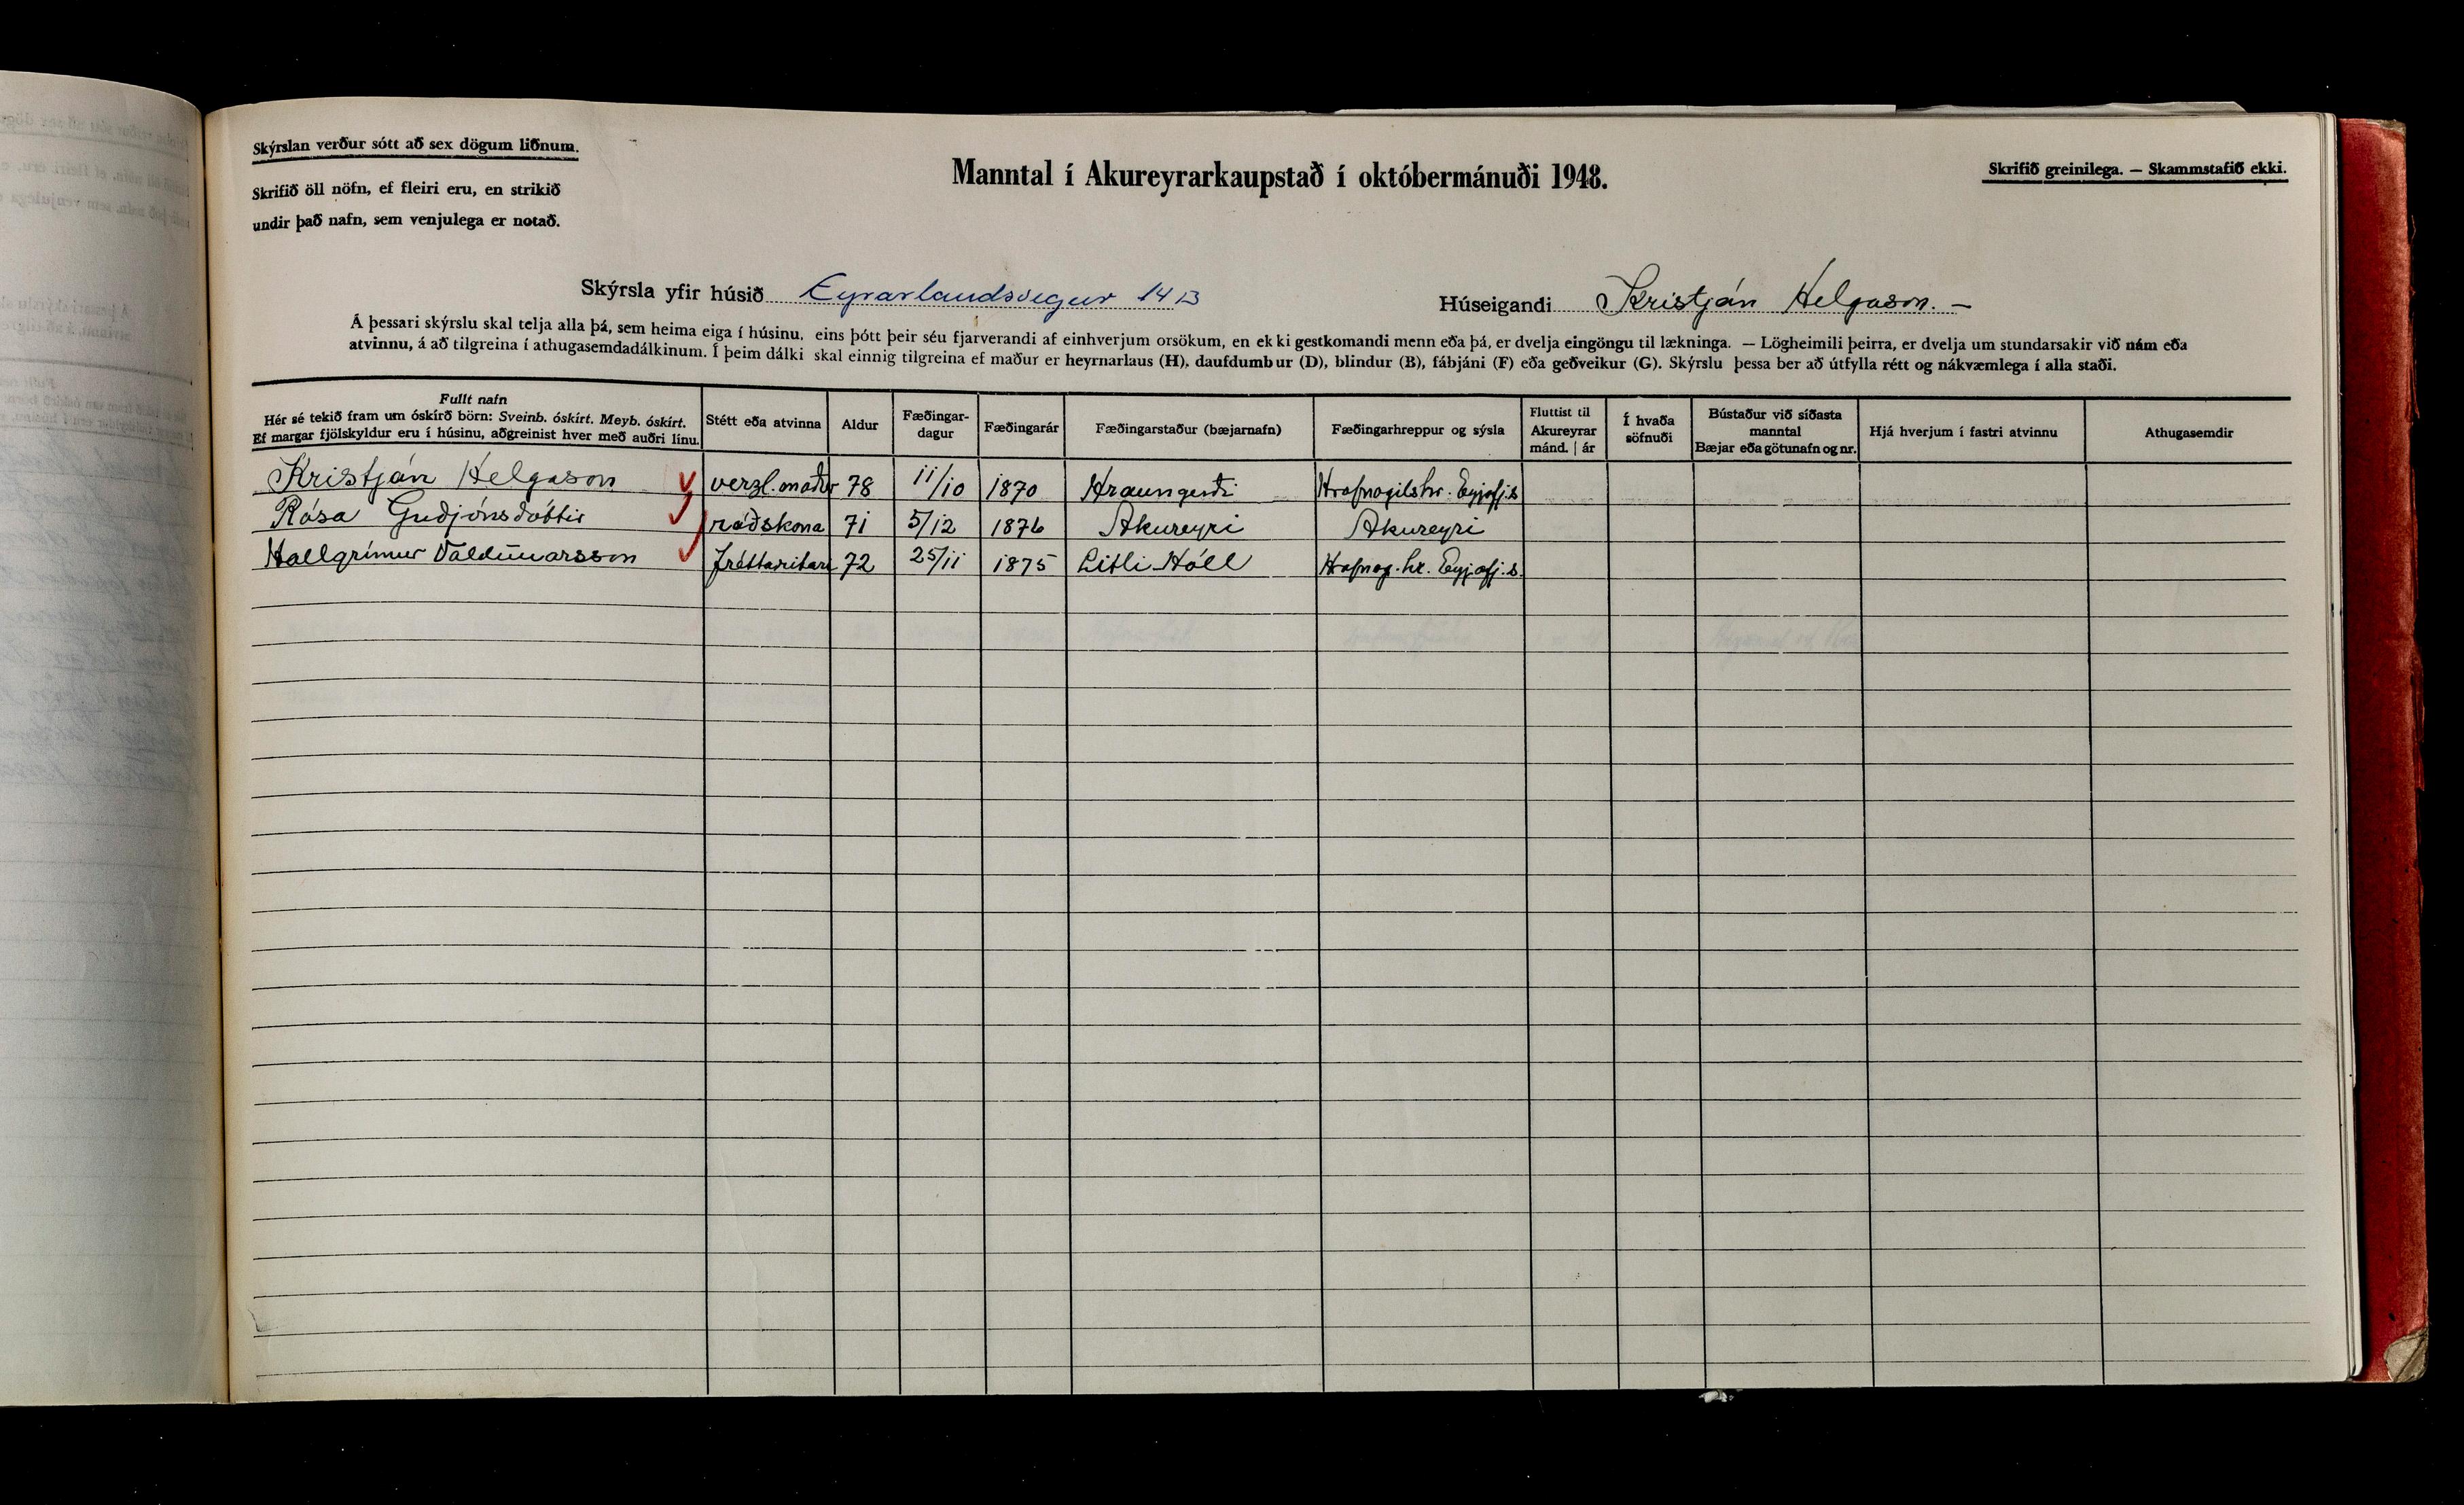 Skýrslan verður sótt að sex dögum liðnum.
Skrifið öll nöfn, ef fleiri eru, en strikið
undir það nafn, sem venjulega er notað.
Manntal í Akureyrarkaupstað í októbermánuði 1948.
Skrifið greinilega. — Skammstafið ekki.
Skýrsla yfir húsið Eyrarlandsvegur 14 B
Húseigandi Kristján Helgason. —
Á þessari skýrslu skal telja alla þá, sem heima eiga í húsinu, eins þótt þeir séu fjarverandi af einhverjum orsökum, en ekki gestkomandi menn eða þá, er dvelja eingöngu til lækninga. — Lögheimili þeirra, er dvelja um stundarsakir við nám eða
atvinnu, á að tilgreina í athugasemdadálkinum. Í þeim dálki skal einnig tilgreina ef maður er heyrnarlaus (H), daufdumbur (D), blindur (B), fábjáni (F) eða geðveikur (G). Skýrslu þessa ber að útfylla rétt og nákvæmlega í alla staði.
Fullt nafn
Hér sé tekið fram um óskírð börn: Sveinb. óskírt. Meyb. óskírt.
Ef margar fjölskyldur eru í húsinu, aðgreinist hver með auðri línu.
Stétt eða atvinna
Aldur
Fæðingar-
dagur
Fæðingarár
Fæðingarstaður (bæjarnafn)
Fæðingarhreppur og sýsla
Fluttist til
Akureyrar
mánd. | ár
Í hvaða
söfnuði
Bústaður við síðasta
manntal
Bæjar eða götunafn og nr.
Hjá hverjum í fastri atvinnu
Athugasemdir
Kristján Helgason verzl.maður 78 11/10 1870 Hraungerði Hrafnagilshr. Eyjafj.s
Rósa Guðjónsdóttir ráðskona 71 5/12 1876 Akureyri Akureyri
Hallgrímur Valdimarsson fréttaritari 72 25/11 1875 Litli-Hóll Hrafnag.hr. Eyjafj.s.